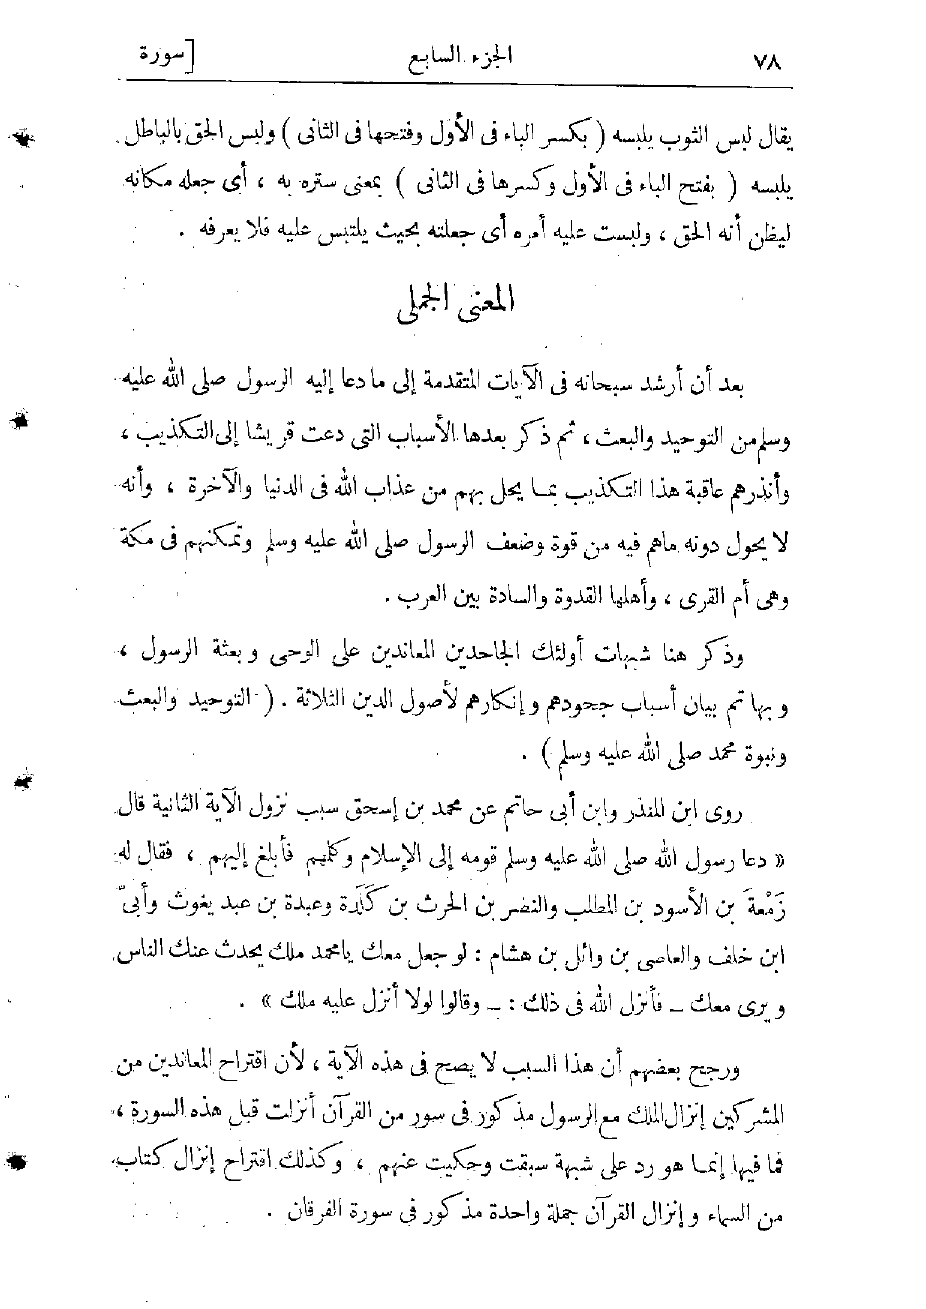 ٧٨ الجزء السابع [ سورة
يقال لبس الثوب يلبسه ( بكسر الباء فى الأول وفتحها فى الثانى ) ولبس الحق بالباطل
يلبسه ( بفتح الباء فى الأول وكسرها فى الثانى ) بمعنى ستره به ، أى جعله مكانه
ليظن أنه الحق ، ولبست عليه أمره أى جعلته بحيث يلتبس عليه فلا يعرفه .
المعنى الجملى
بعد أن أرشد سبحانه فى الآيات المتقدمة إلى ما دعا إليه الرسول صلى الله عليه
وسلم من التوحيد والبعث ، ثم ذكر بعدها الأسباب التى دعت قريشا إلى التكذيب ،
وأنذرهم عاقبة هذا التكذيب بما يحل بهم من عذاب الله فى الدنيا والآخرة ، وأنه
لا يحول دونه ماهم فيه من قوة وضعف الرسول صلى الله عليه وسلم وتمكنهم فى مكة
وهى أم القرى ، وأهلها القدوة والسادة بين العرب .
وذكر هنا شبهات أولئك الجاحدين المعاندين على الوحى وبعثة الرسول ،
وبها تم بيان أسباب جحودهم وإنكارهم لأصول الدين الثلاثة . ( التوحيد والبعث
ونبوة محمد صلى الله عليه وسلم ) .
روى ابن المنذر وابن أبى حاتم عن محمد بن إسحق سبب نزول الآية الثانية قال
« دعا رسول الله صلى الله عليه وسلم قومه إلى الإسلام وكلمهم فأبلغ إليهم ، فقال له
زَمْعَة بن الأسود بن المطلب والنضر بن الحرث بن كَلَدة وعبدة بن عبد يغوث وأبىّ
ابن خلف والعاصى بن وائل بن هشام : لو جعل معك يا محمد ملك يحدث عنك الناس
ويرى معك ــ فأنزل الله فى ذلك : ــ وقالوا لولا أنزل عليه ملك » .
ورجح بعضهم أن هذا السبب لا يصح فى هذه الآية ، لأن اقتراح المعاندين من
المشركين إنزال الملك مع الرسول مذكور فى سور من القرآن أنزلت قبل هذه السورة ،
فما فيها إنما هو رد على شبهة سبقت وحكيت عنهم ، وكذلك اقتراح إنزال كتاب
من السماء وإنزال القرآن جملة واحدة مذكور فى سورة الفرقان .